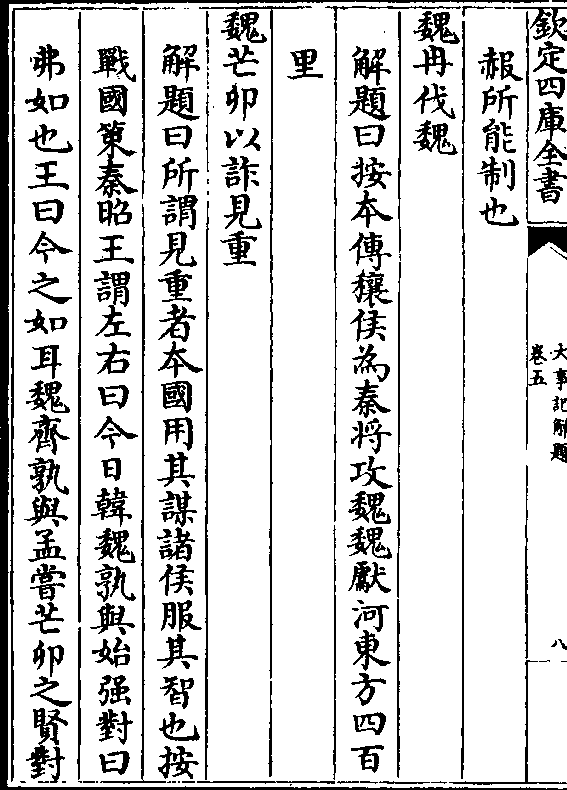 欽定四庫全書
大事記解題
卷五
八
赧所能制也
魏冉伐魏
解題曰按本傳穰侯為秦將攻魏魏獻河東方四百
里
魏芒卯以詐見重
解題曰所謂見重者本國用其謀諸侯服其智也按
戰國策秦昭王謂左右曰今日韓魏孰與始强對曰
弗如也王曰今之如耳魏齊孰與孟嘗芒卯之賢對